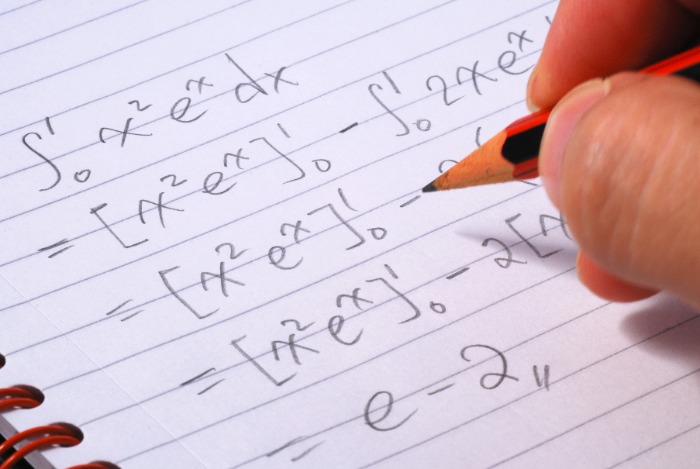 ∫₀¹ x² eˣ dx
= [x² eˣ]₀¹ - ∫₀¹ 2x eˣ
= [x² eˣ]₀¹ -
= [x² eˣ]₀¹ - 2[x
= e - 2 〃